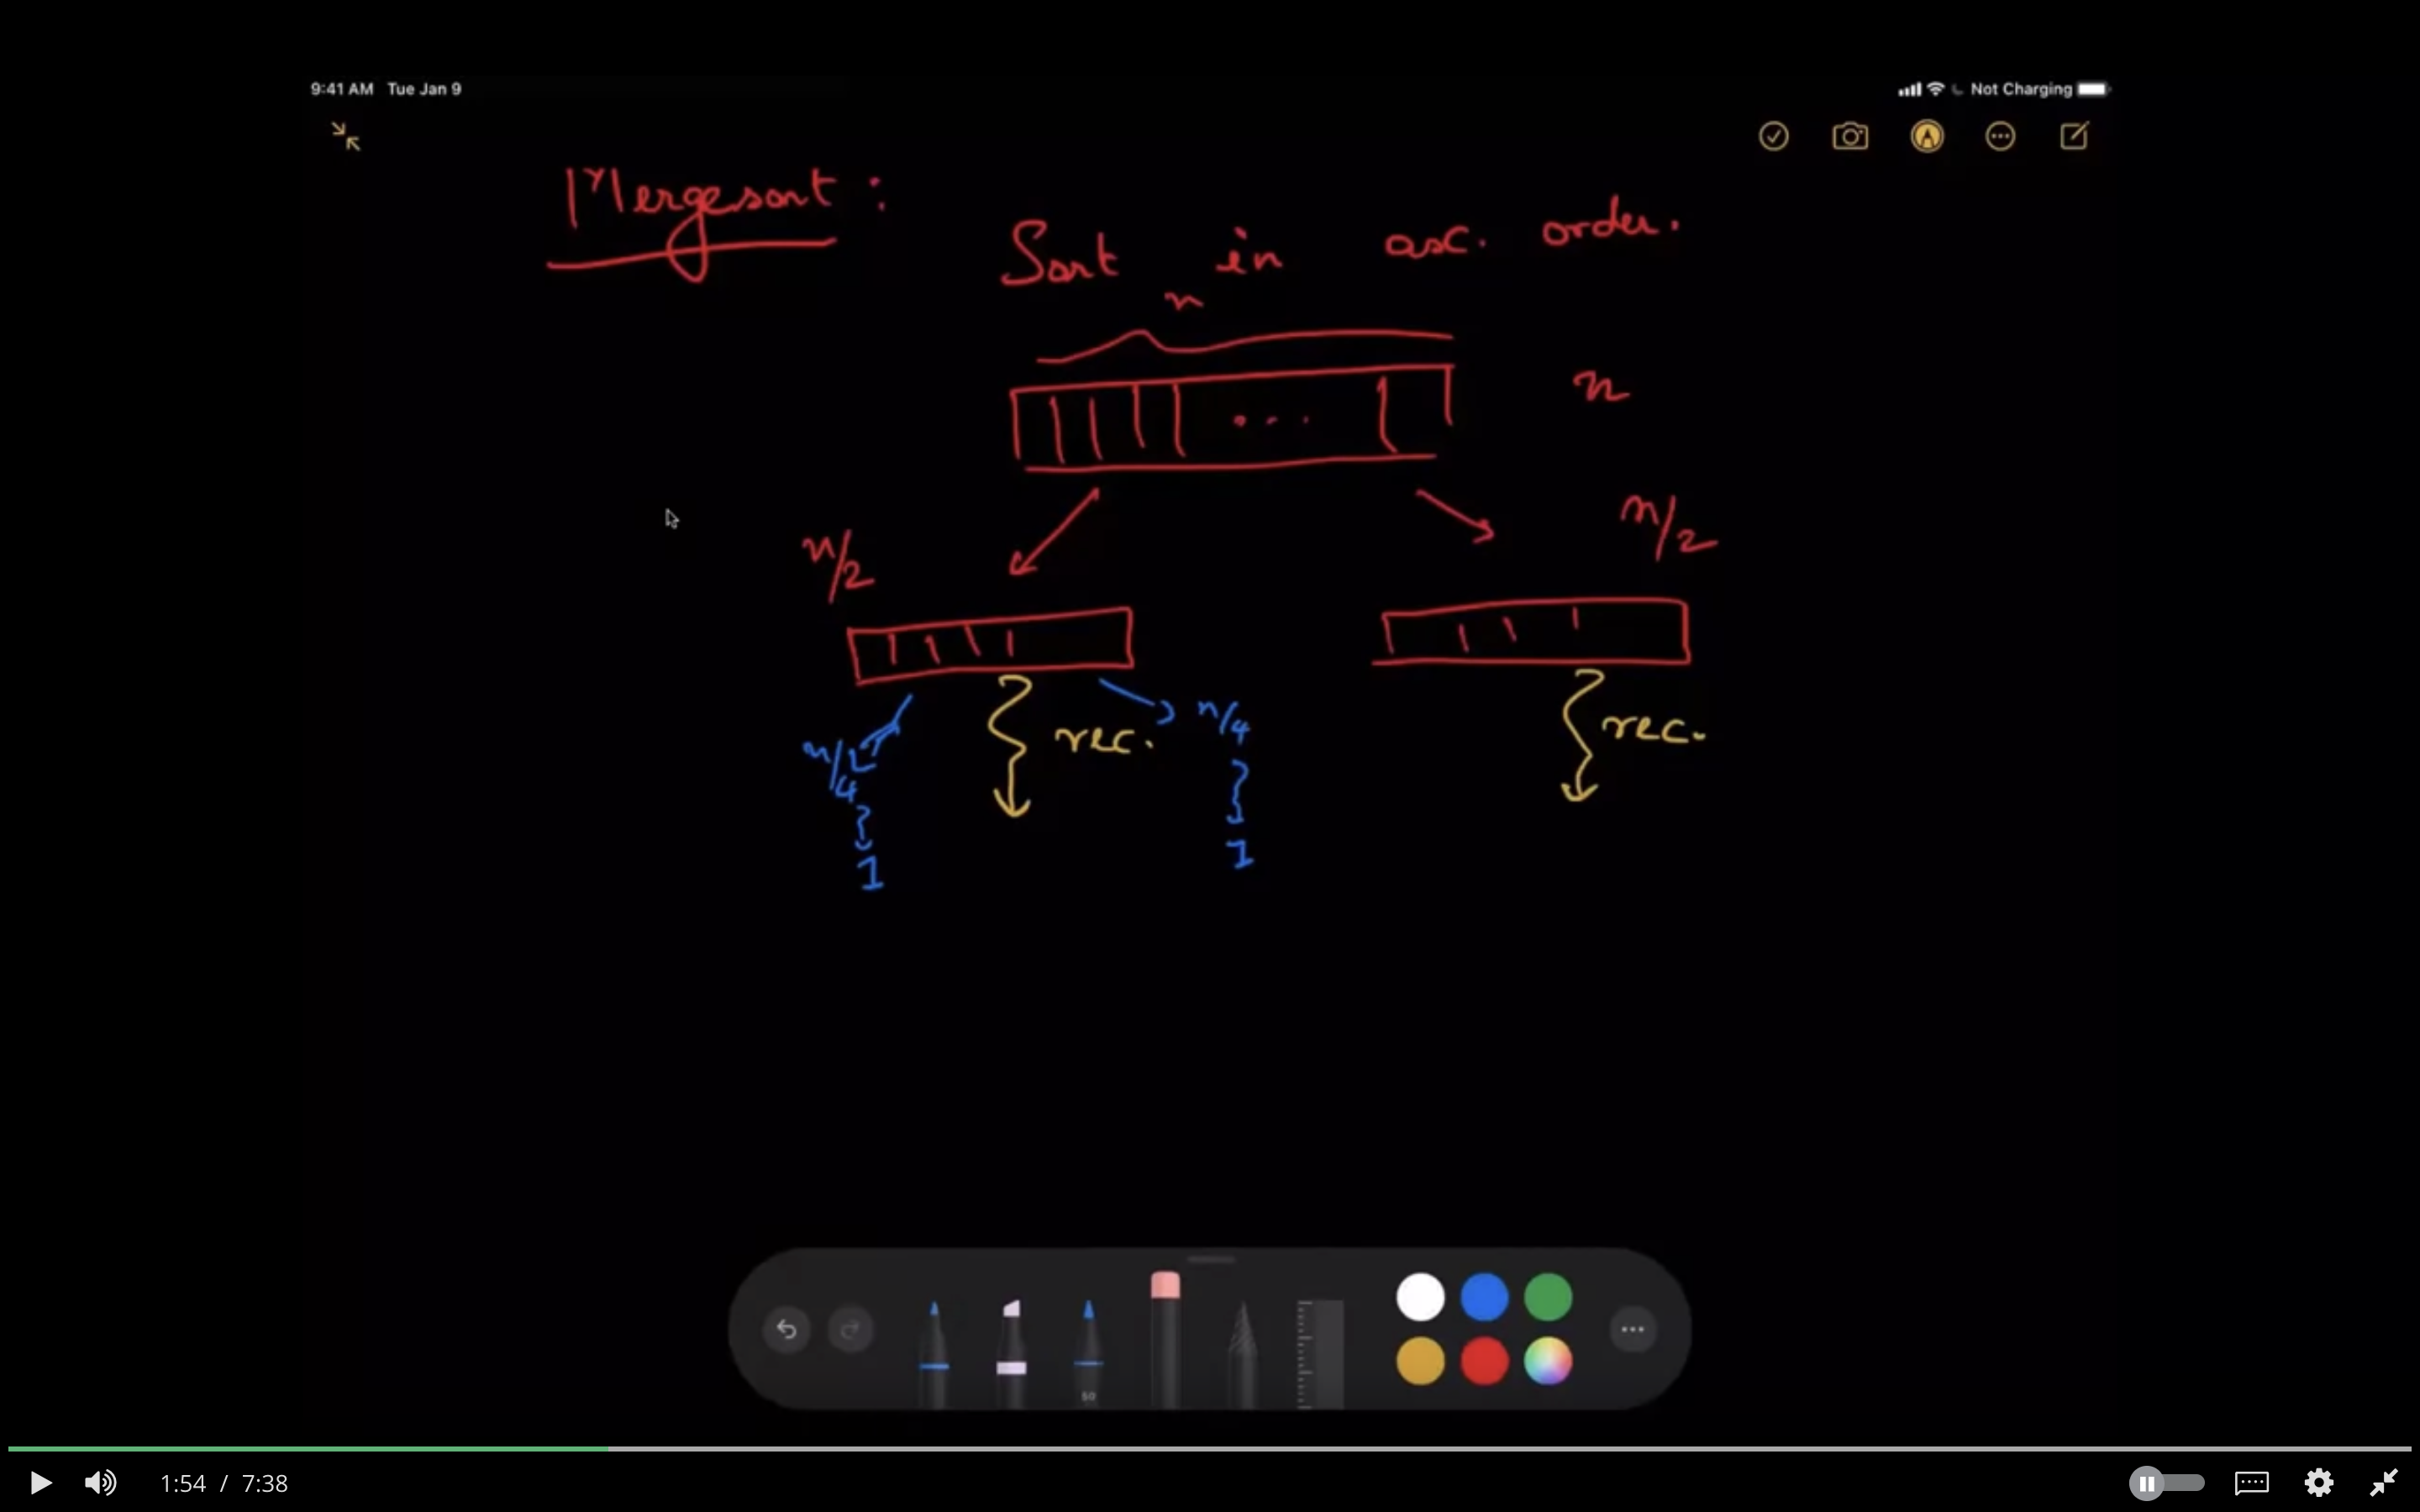 9:41 AM Tue Jan 9
Not Charging
Mergesort :
Sort in asc. order.
n
n
n/2
n/2
n/4
rec.
n/4
rec.
1
1
50
1:54 / 7:38